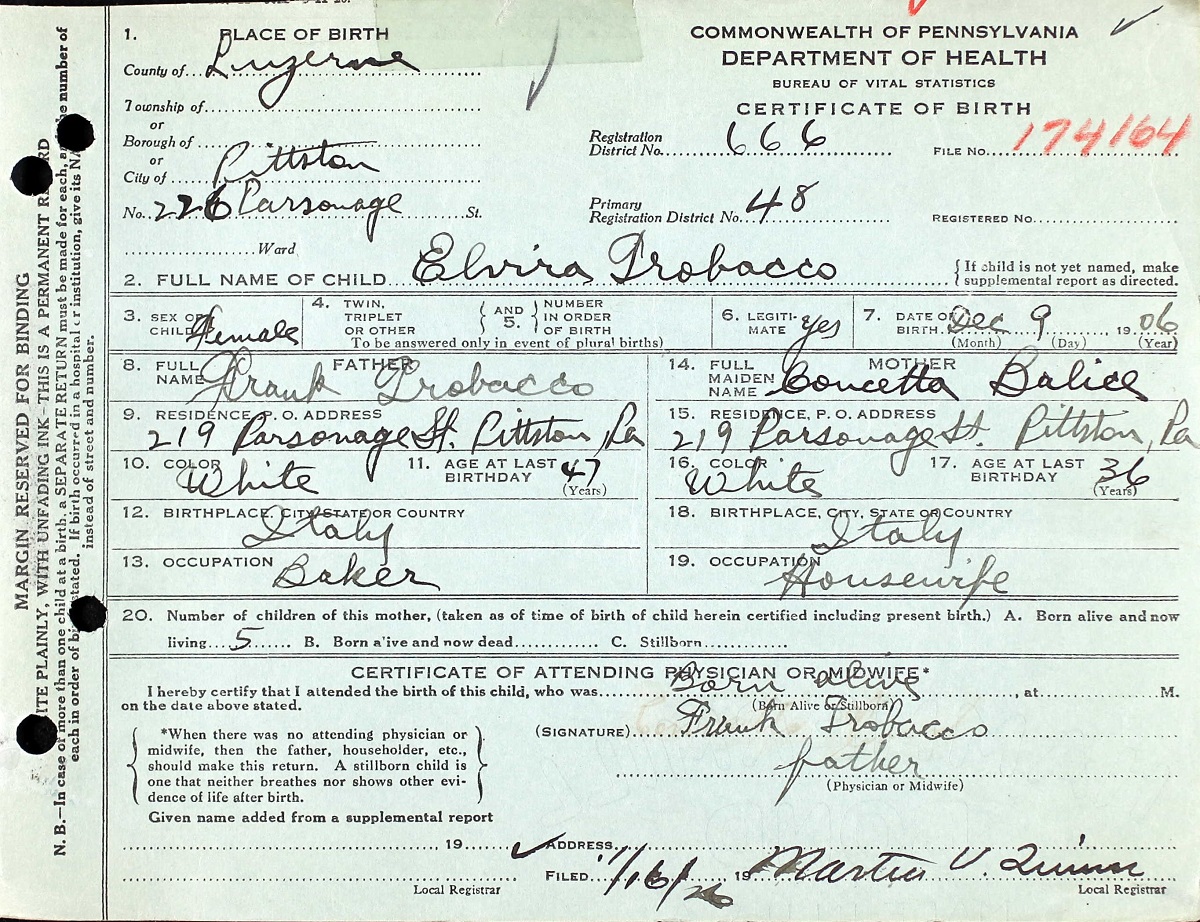 1. PLACE OF BIRTH
County of Luzerne
Township of
or
Borough of
or
City of Pittston
No. 226 Parsonage St.
Ward
COMMONWEALTH OF PENNSYLVANIA
DEPARTMENT OF HEALTH
BUREAU OF VITAL STATISTICS
CERTIFICATE OF BIRTH
Registration District No. 666
FILE No. 174164
Primary Registration District No. 48
REGISTERED No.
2. FULL NAME OF CHILD Elvira Probacco
{ If child is not yet named, make
supplemental report as directed.
3. SEX OF CHILD Female
4. TWIN, TRIPLET OR OTHER { AND 5. } NUMBER IN ORDER OF BIRTH
To be answered only in event of plural births)
6. LEGITIMATE yes
7. DATE OF BIRTH Dec 9, 1906
(Month) (Day) (Year)
FATHER
8. FULL NAME Frank Probacco
9. RESIDENCE, P. O. ADDRESS
219 Parsonage St. Pittston, Pa
10. COLOR White
11. AGE AT LAST BIRTHDAY 47
(Years)
12. BIRTHPLACE, CITY, STATE OR COUNTRY
Italy
13. OCCUPATION Baker
MOTHER
14. FULL MAIDEN NAME Concetta Balice
15. RESIDENCE, P. O. ADDRESS
219 Parsonage St. Pittston, Pa
16. COLOR White
17. AGE AT LAST BIRTHDAY 36
(Years)
18. BIRTHPLACE, CITY, STATE OR COUNTRY
Italy
19. OCCUPATION Housewife
20. Number of children of this mother, (taken as of time of birth of child herein certified including present birth.) A. Born alive and now
living 5 B. Born a'ive and now dead C. Stillborn
CERTIFICATE OF ATTENDING PHYSICIAN OR MIDWIFE*
I hereby certify that I attended the birth of this child, who was Born alive, at M.
on the date above stated. (Born Alive or Stillborn)
*When there was no attending physician or
midwife, then the father, householder, etc.,
should make this return. A stillborn child is
one that neither breathes nor shows other evi-
dence of life after birth.
(SIGNATURE) Frank Probacco
father
(Physician or Midwife)
Given name added from a supplemental report
19
Local Registrar
ADDRESS
FILED 11/16/26 19 Martin V. Quinn
Local Registrar
MARGIN RESERVED FOR BINDING
ITE PLAINLY, WITH UNFADING INK—THIS IS A PERMANENT R RD
N. B.—In case of more than one child at a birth, a SEPARATE RETURN must be made for each, and the number of
each in order of birth stated. If birth occurred in a hospital or institution, give its NA
instead of street and number.